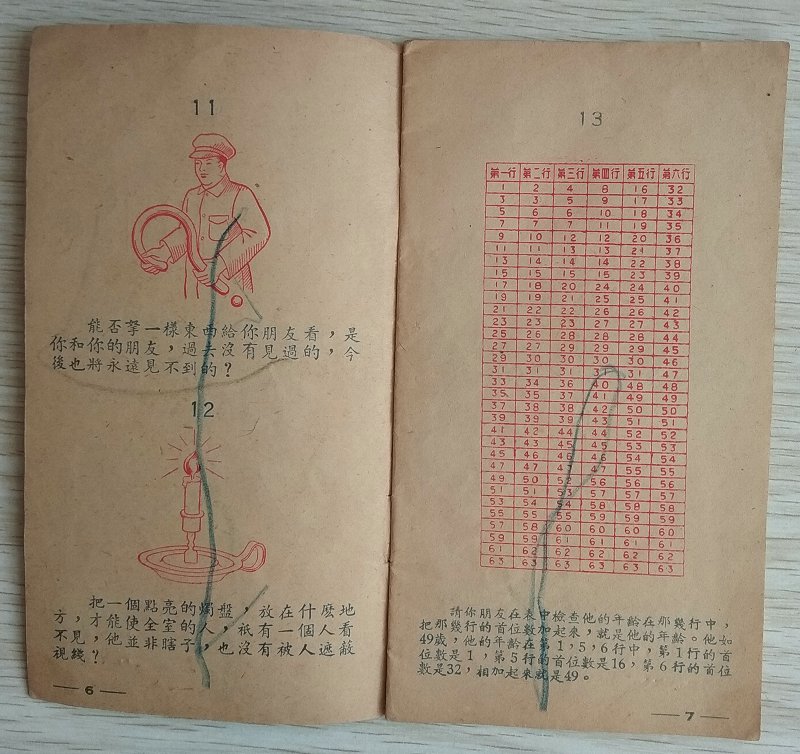 11
能否拏一樣東西給你朋友看，是
你和你的朋友，過去沒有見過的，今
後也將永遠見不到的？
12
把一個點亮的燭盤，放在什麼地
方，才能使全室的人，祇有一個人看
不見，他並非瞎子，也沒有被人遮蔽
視綫？
— 6 —
13
第一行 第二行 第三行 第四行 第五行 第六行
1 2 4 8 16 32
3 3 5 9 17 33
5 6 6 10 18 34
7 7 7 11 19 35
9 10 12 12 20 36
11 11 13 13 21 37
13 14 14 14 22 38
15 15 15 15 23 39
17 18 20 24 24 40
19 19 21 25 25 41
21 22 22 26 26 42
23 23 23 27 27 43
25 26 28 28 28 44
27 27 29 29 29 45
29 30 30 30 30 46
31 31 31 31 31 47
33 34 36 40 48 48
35 35 37 41 49 49
37 38 38 42 50 50
39 39 39 43 51 51
41 42 44 44 52 52
43 43 45 45 53 53
45 46 46 46 54 54
47 47 47 47 55 55
49 50 52 56 56 56
51 51 53 57 57 57
53 54 54 58 58 58
55 55 55 59 59 59
57 58 60 60 60 60
59 59 61 61 61 61
61 62 62 62 62 62
63 63 63 63 63 63
請你朋友在表中檢查他的年齡在那幾行中，
把那幾行的首位數加起來，就是他的年齡。他如
49歲，他的年齡在第1，5，6行中，第1行的首
位數是1，第5行的首位數是16，第6行的首位
數是32，相加起來就是49。
— 7 —